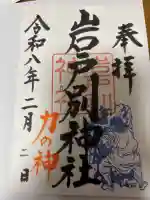 奉拝
岩戸別神社
力の神
令和八年二月二日